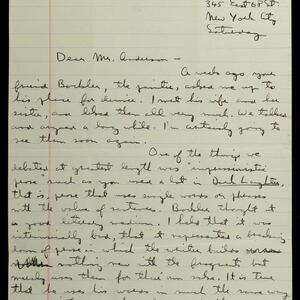 345 East 68 St.
New York City
Saturday
Dear Mr. Anderson —
A week ago your
friend Buckler, the painter, asked me up to
his place for dinner. I met his wife and her
sister, and liked them all very much. We talked
and argued a long while. I'm certainly going to
see them soon again.
One of the things we
debated at greatest length was impressionistic
prose such as you used a lot in Dark Laughter,
that is, prose that uses single words or phrases
with the value of sentences. Buckler thought it
a good literary medium. I held that it was
intrinsically bad, that it represented a breaking
down of prose in which the writer builds
nothing new with the fragments but
merely uses them for their own sake. It is true
that he uses his words in much the same way